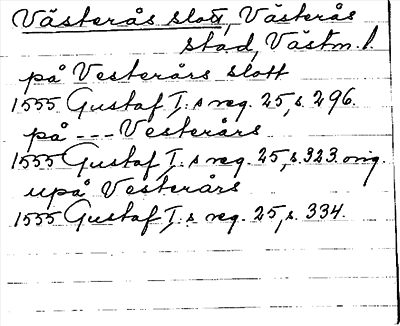 Västerås slott, Västerås
stad, Västm. l.
på Vesterårs slott
1555 Gustaf I:s reg. 25, s. 296.
på --- Vesterårs
1555 Gustaf I:s reg. 25, s. 323. orig.
upå Vesterårs
1555 Gustaf I:s reg. 25, s. 334.